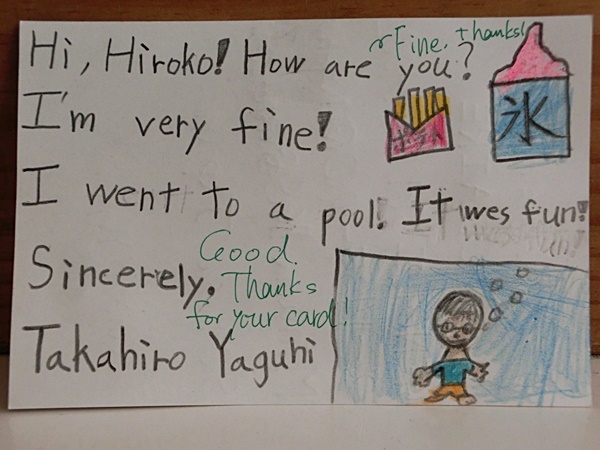 Hi, Hiroko! How are you?
Fine, thanks!
I'm very fine!
ポテト
氷
I went to a pool! It wes fun!
Good.
Sincerely.
Thanks
for your card!
Takahiro Yaguhi